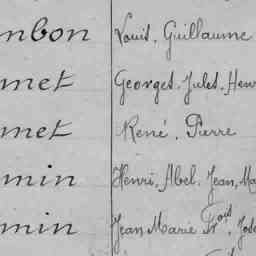 nbon Louis, Guillaume
met Georges, Jules, Henr
met René, Pierre
min Henri, Abel, Jean, Ma
min Jean Marie Fçois, José